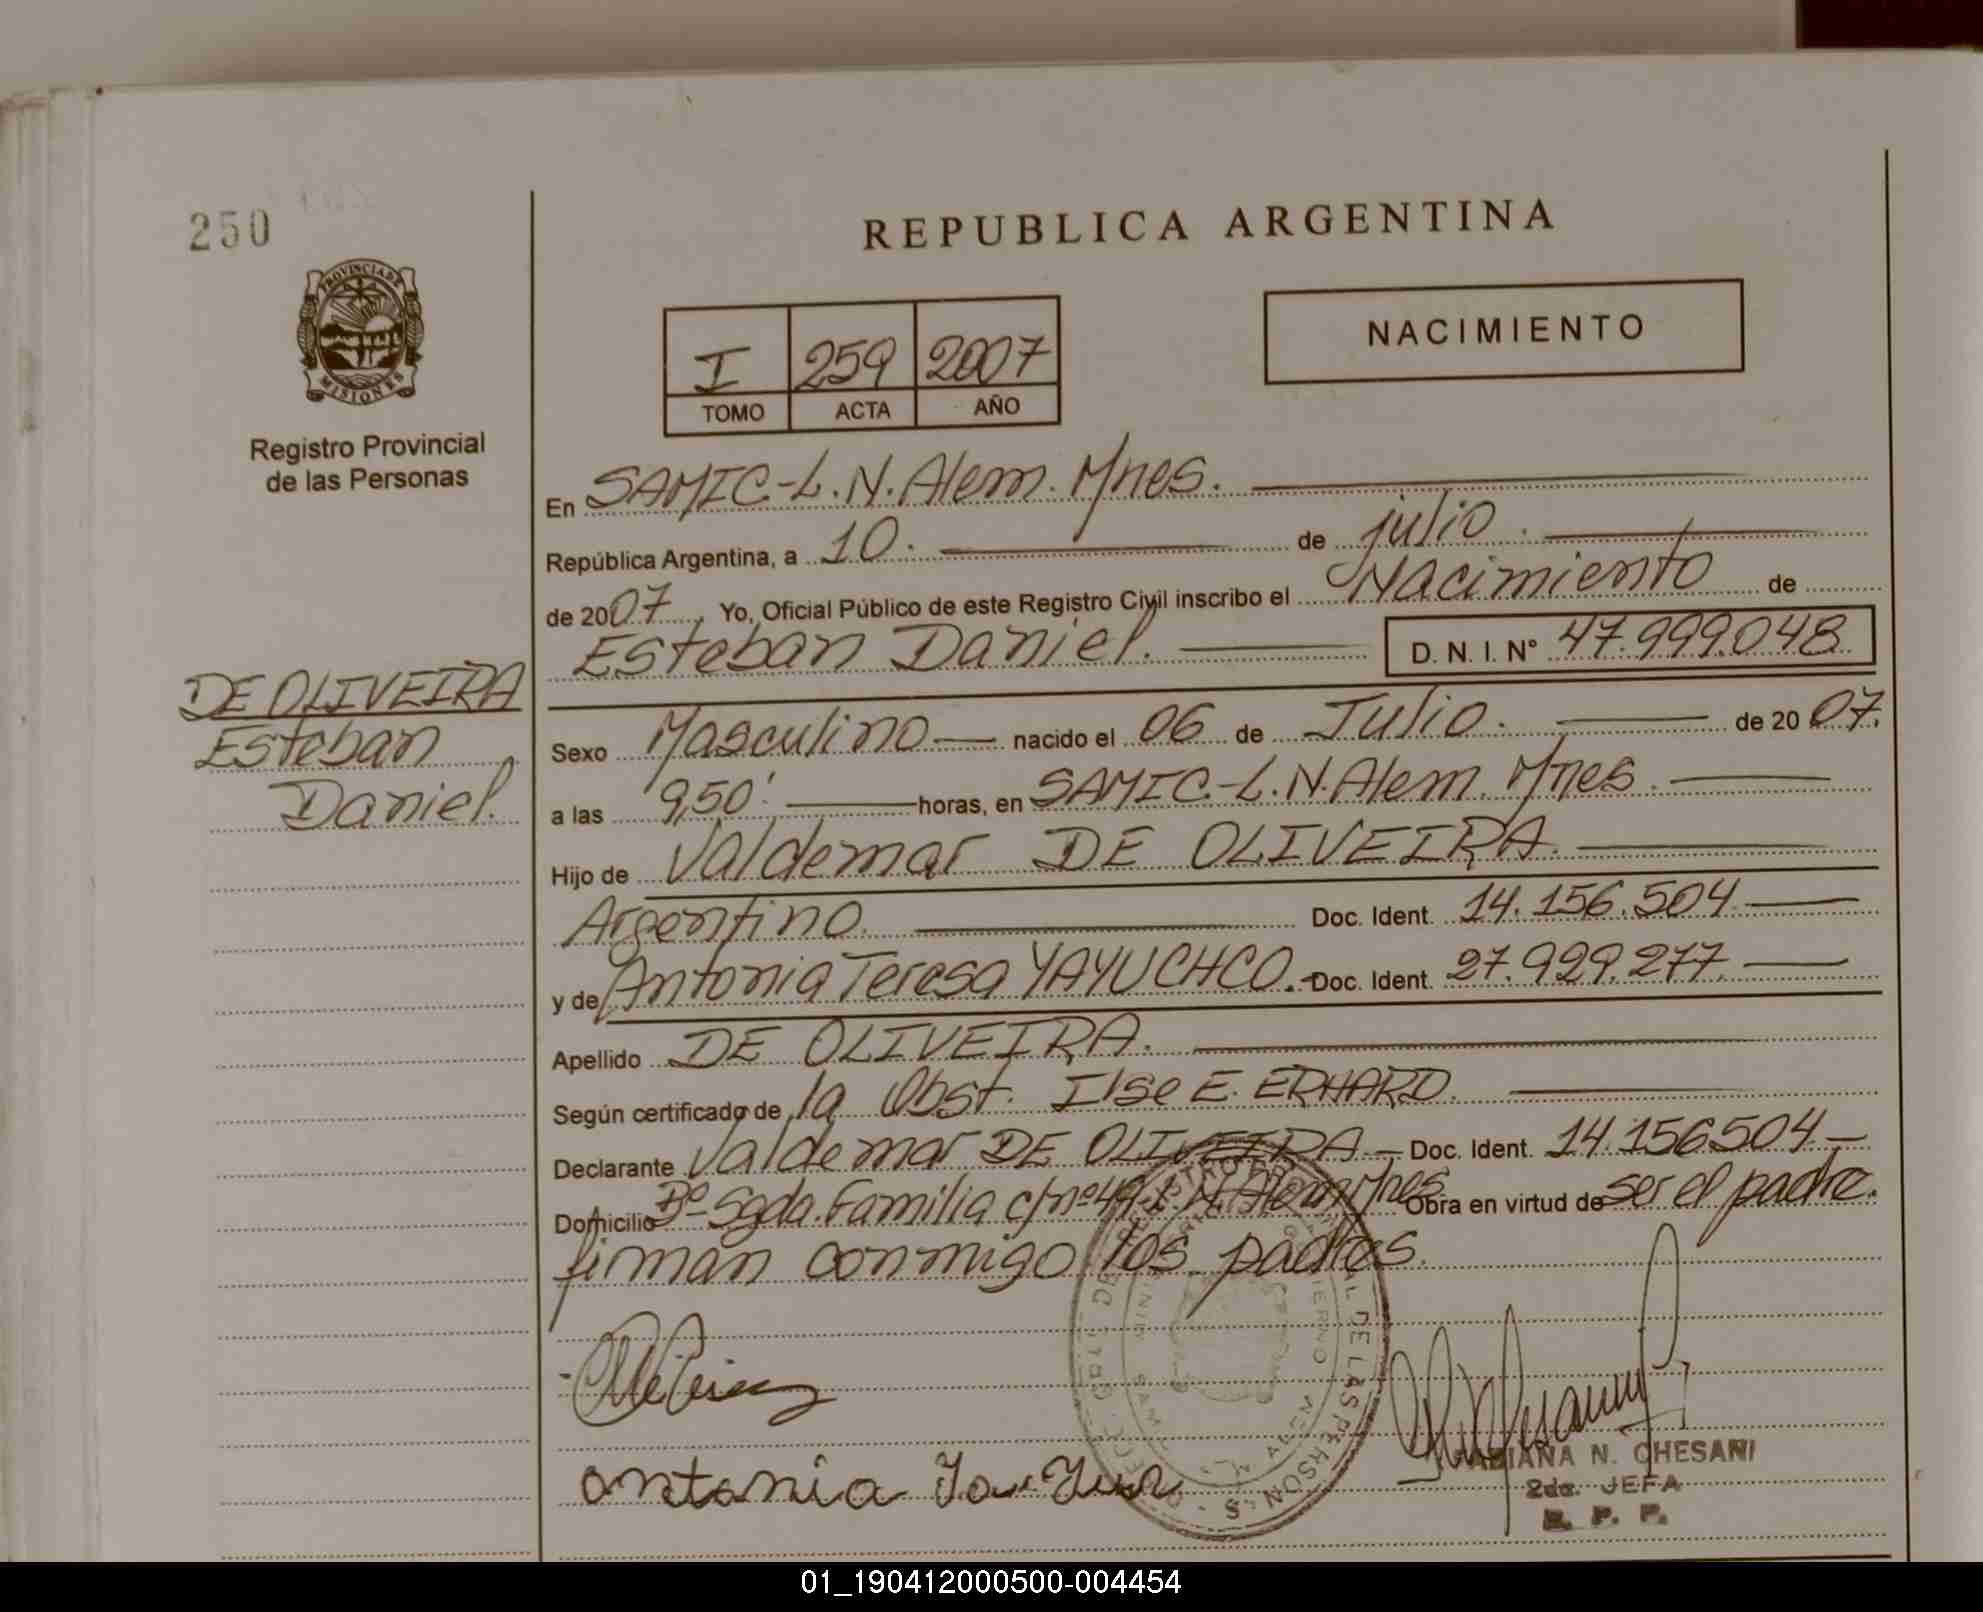 250
REPUBLICA ARGENTINA
PROVINCIA DE
MISIONES
Registro Provincial
de las Personas
I 259 2007
TOMO ACTA AÑO
NACIMIENTO
En SAMIC-L.N.Alem. Mnes.
República Argentina, a 10. de julio.
de 2007, Yo, Oficial Público de este Registro Civil inscribo el Nacimiento de
Esteban Daniel. D. N. I. Nº 47.999.048
DE OLIVEIRA
Esteban
Daniel.
Sexo Masculino nacido el 06 de Julio. de 2007.
a las 9,50'. horas, en SAMIC-L.N.Alem. Mnes.
Hijo de Valdemar DE OLIVEIRA.
Argentino. Doc. Ident. 14.156.504
y de Antonia Teresa YAYUCHCO.- Doc. Ident. 27.929.277.
Apellido DE OLIVEIRA.
Según certificado de la Obst. Ilse E. ERHARD.
Declarante Valdemar DE OLIVEIRA - Doc. Ident. 14.156504-
Domicilio Bº Sgda. Familia c/nº49-L.N.Alem Mnes Obra en virtud de ser el padre.
firman conmigo los padres.
antonia
FABIANA N. CHESANI
2da. JEFA
R. P. P.
01_190412000500-004454